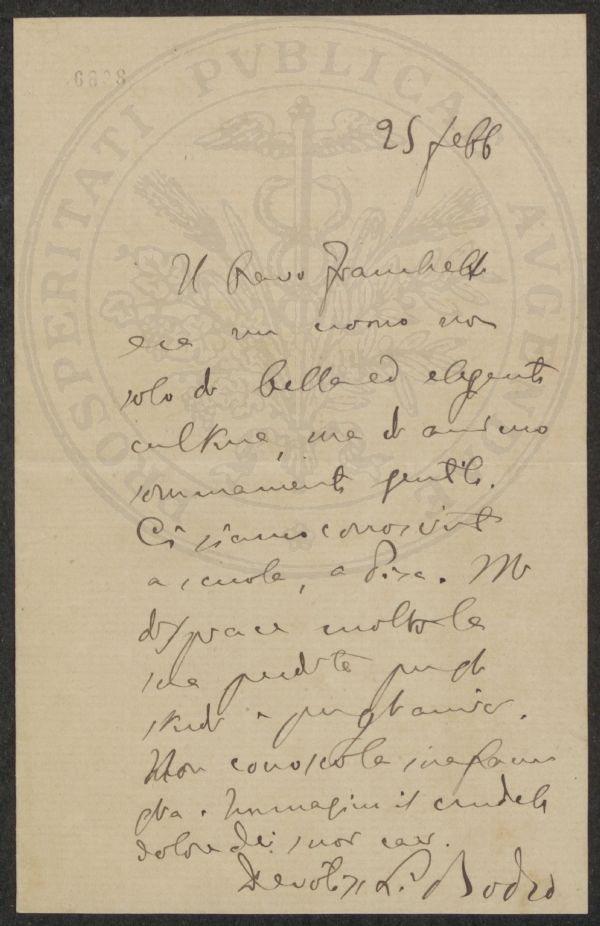 6838
PROSPERITATI PVBLICAE AVGENDAE
25 febb
Il bravo Franchetti
era un uomo non
solo di bella ed elegante
cultura, ma di animo
sommamente gentile.
Ci siamo conosciuti
a scuola, a Pisa. Mi
dispiace molto la
sua perdita per gli
studi e per gli amici.
Non conosco la sua fami
glia. Immagini il crudele
dolore dei suoi cari.
Devotis L. Bodio